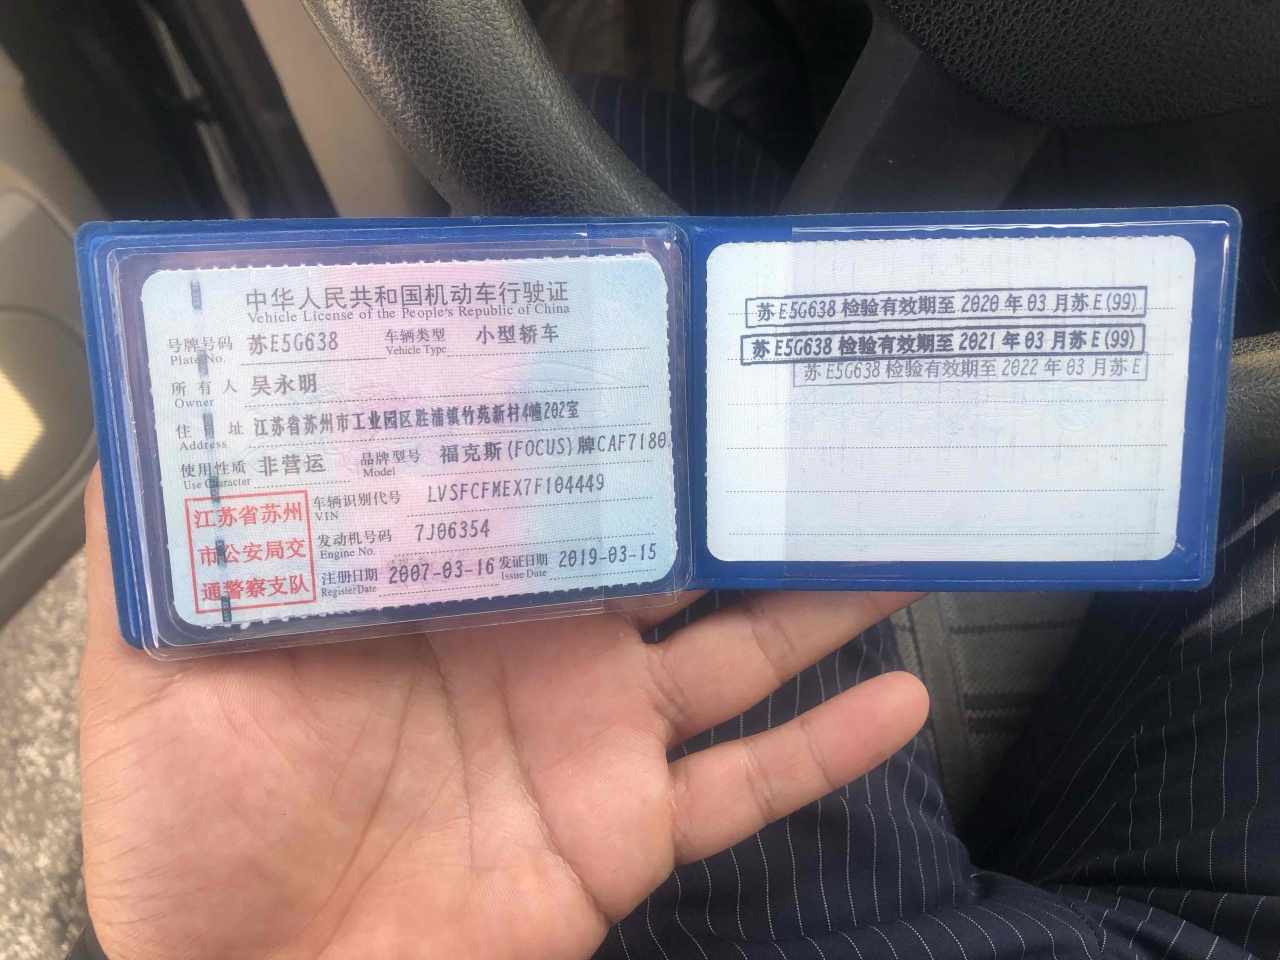 中华人民共和国机动车行驶证
Vehicle License of the People's Republic of China
号牌号码 苏E5G638 车辆类型 小型轿车
Plate No. Vehicle Type
所有人 吴永明
Owner
住址 江苏省苏州市工业园区胜浦镇竹苑新村4幢202室
Address
使用性质 非营运 品牌型号 福克斯(FOCUS)牌CAF7180
Use Character Model
江苏省苏州
市公安局交
通警察支队
车辆识别代号 LVSFCFMEX7F104449
VIN
发动机号码 7J06354
Engine No.
注册日期 2007-03-16 发证日期 2019-03-15
Register Date Issue Date
苏E5G638 检验有效期至 2020 年 03 月苏E(99)
苏E5G638 检验有效期至 2021 年 03 月苏E(99)
苏E5G638 检验有效期至 2022 年 03 月苏E